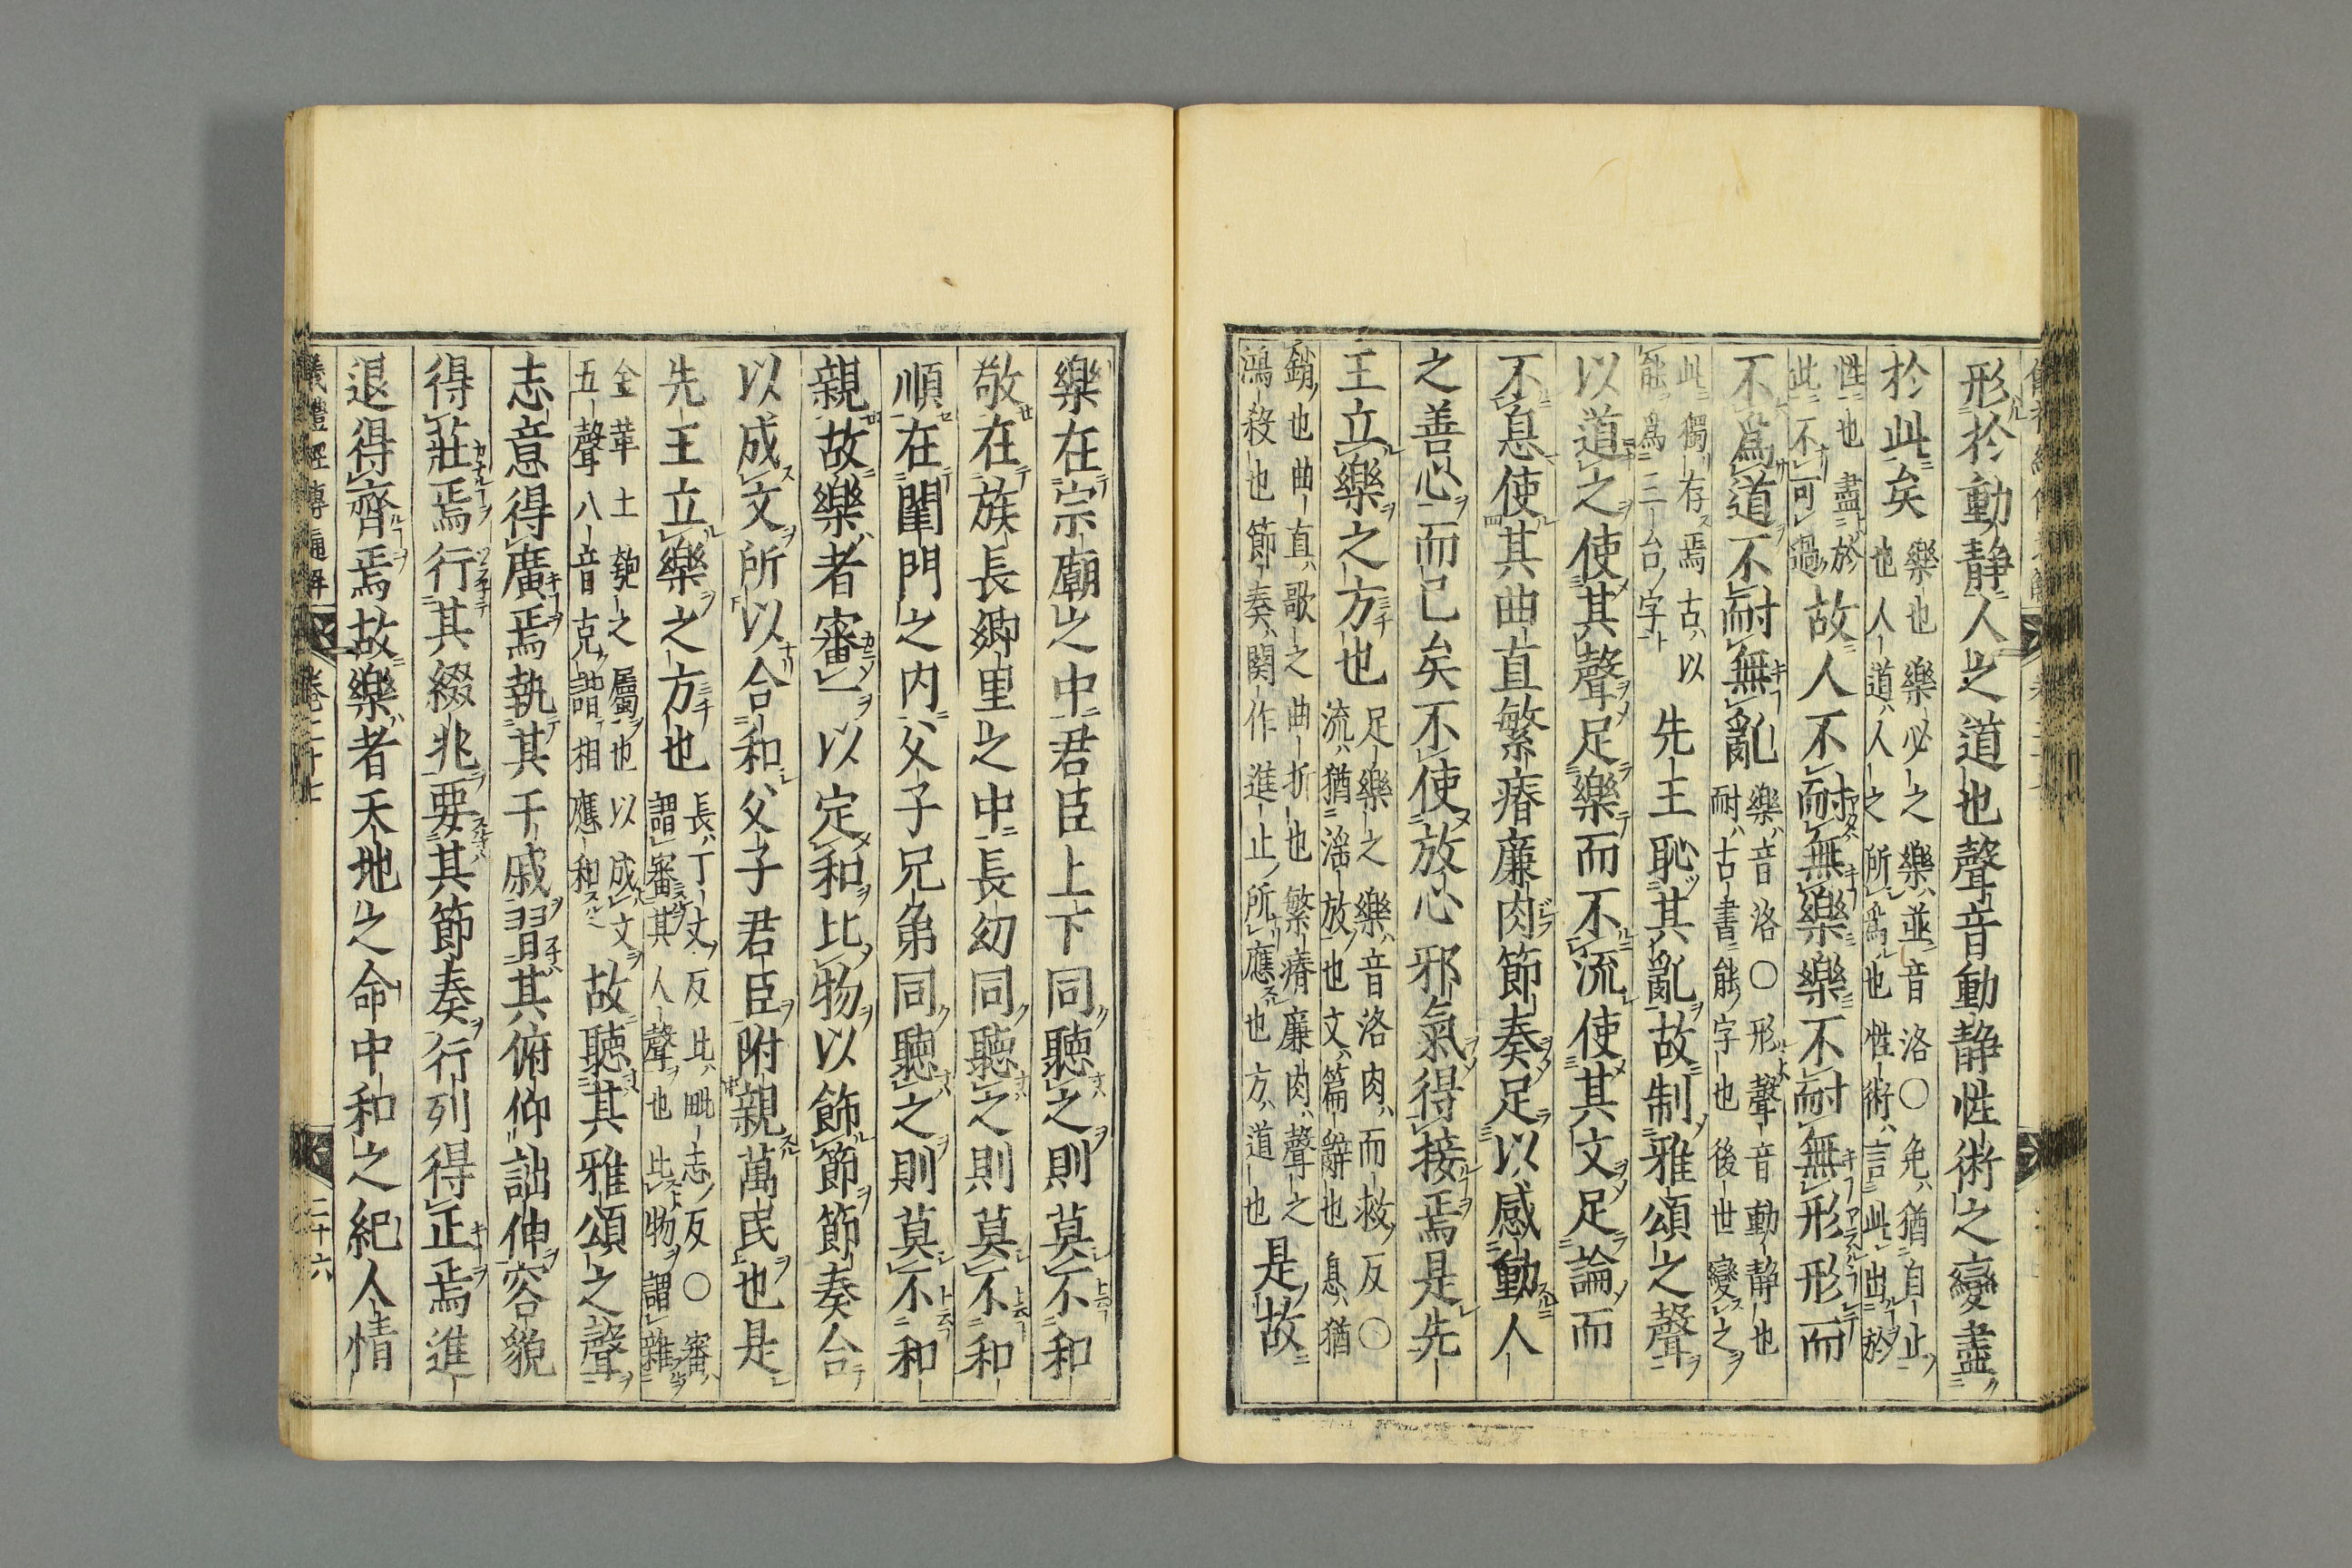 形於動靜人之道也聲音動靜性術之變盡
於此矣樂也樂必之樂並音洛〇免猶自止
也人道人之所爲也性術言此出於
性也盡於
此不可過故人不耐無樂樂不耐無形形而
不爲道不耐無亂樂音洛〇形聲音動靜也
耐古書能字也後世變之
此獨存焉古以
能爲三台字先王恥其亂故制雅頌之聲
以道之使其聲足樂而不流使其文足論而
不息使其曲直繁瘠廉肉節奏足以感動人
之善心而已矣不使放心邪氣得接焉是先
王立樂之方也足樂之樂音洛肉而救反〇
流猶淫放也文篇辭也息猶
銷也曲直歌之曲折也繁瘠廉肉聲之
鴻殺也節奏闋作進止所應也方道也是故
樂在宗廟之中君臣上下同聽之則莫不和
敬在族長鄉里之中長幼同聽之則莫不和
順在閨門之内父子兄弟同聽之則莫不和
親故樂者審一以定和比物以飾節節奏合
以成文所以合和父子君臣附親萬民也是
先王立樂之方也長丁丈反比毗志反〇審
謂審其人聲也比物謂雜
金革土匏之屬也以成文
五聲八音克諧相應和故聽其雅頌之聲
志意得廣焉執其干戚習其俯仰詘伸容貌
得莊焉行其綴兆要其節奏行列得正焉進
退得齊焉故樂者天地之命中和之紀人情
儀禮經傳通解
卷二十七
二十六